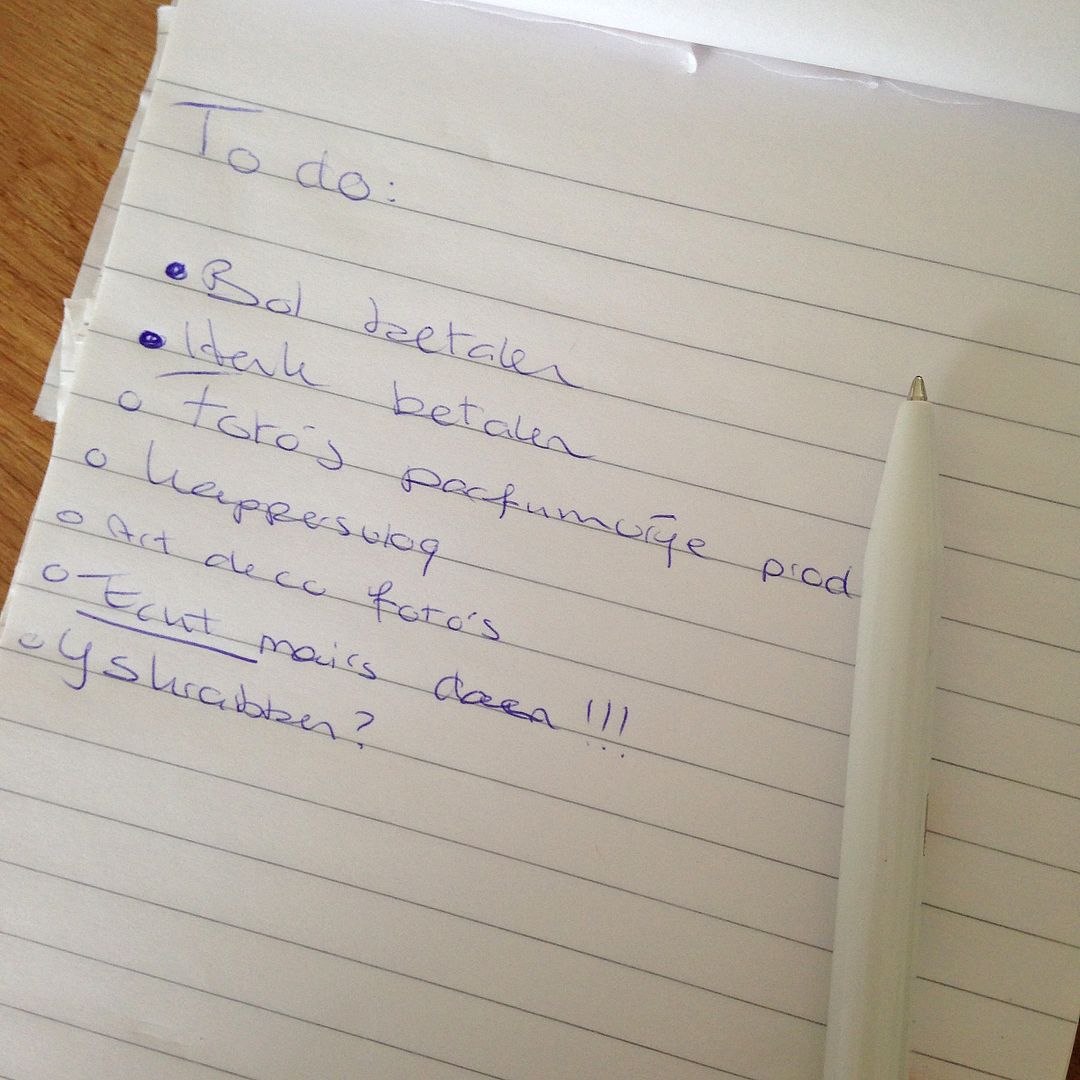 To do:
Bol betalen
Henk betalen
foto's parfumvrije prod
kappersvlog
Art deco foto's
Echt mails doen !!!
Yskrabben?